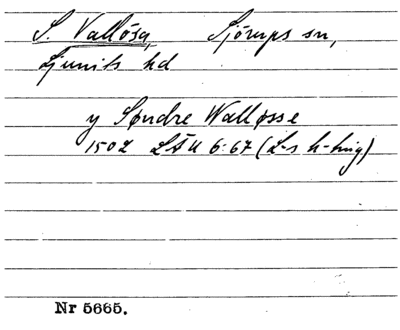 S. Vallösa, Sjörups sn,
Ljunits hd
y Søndre Walløsse
1502 LSU 6-67 (L-s h-ting)
Nr 5665.